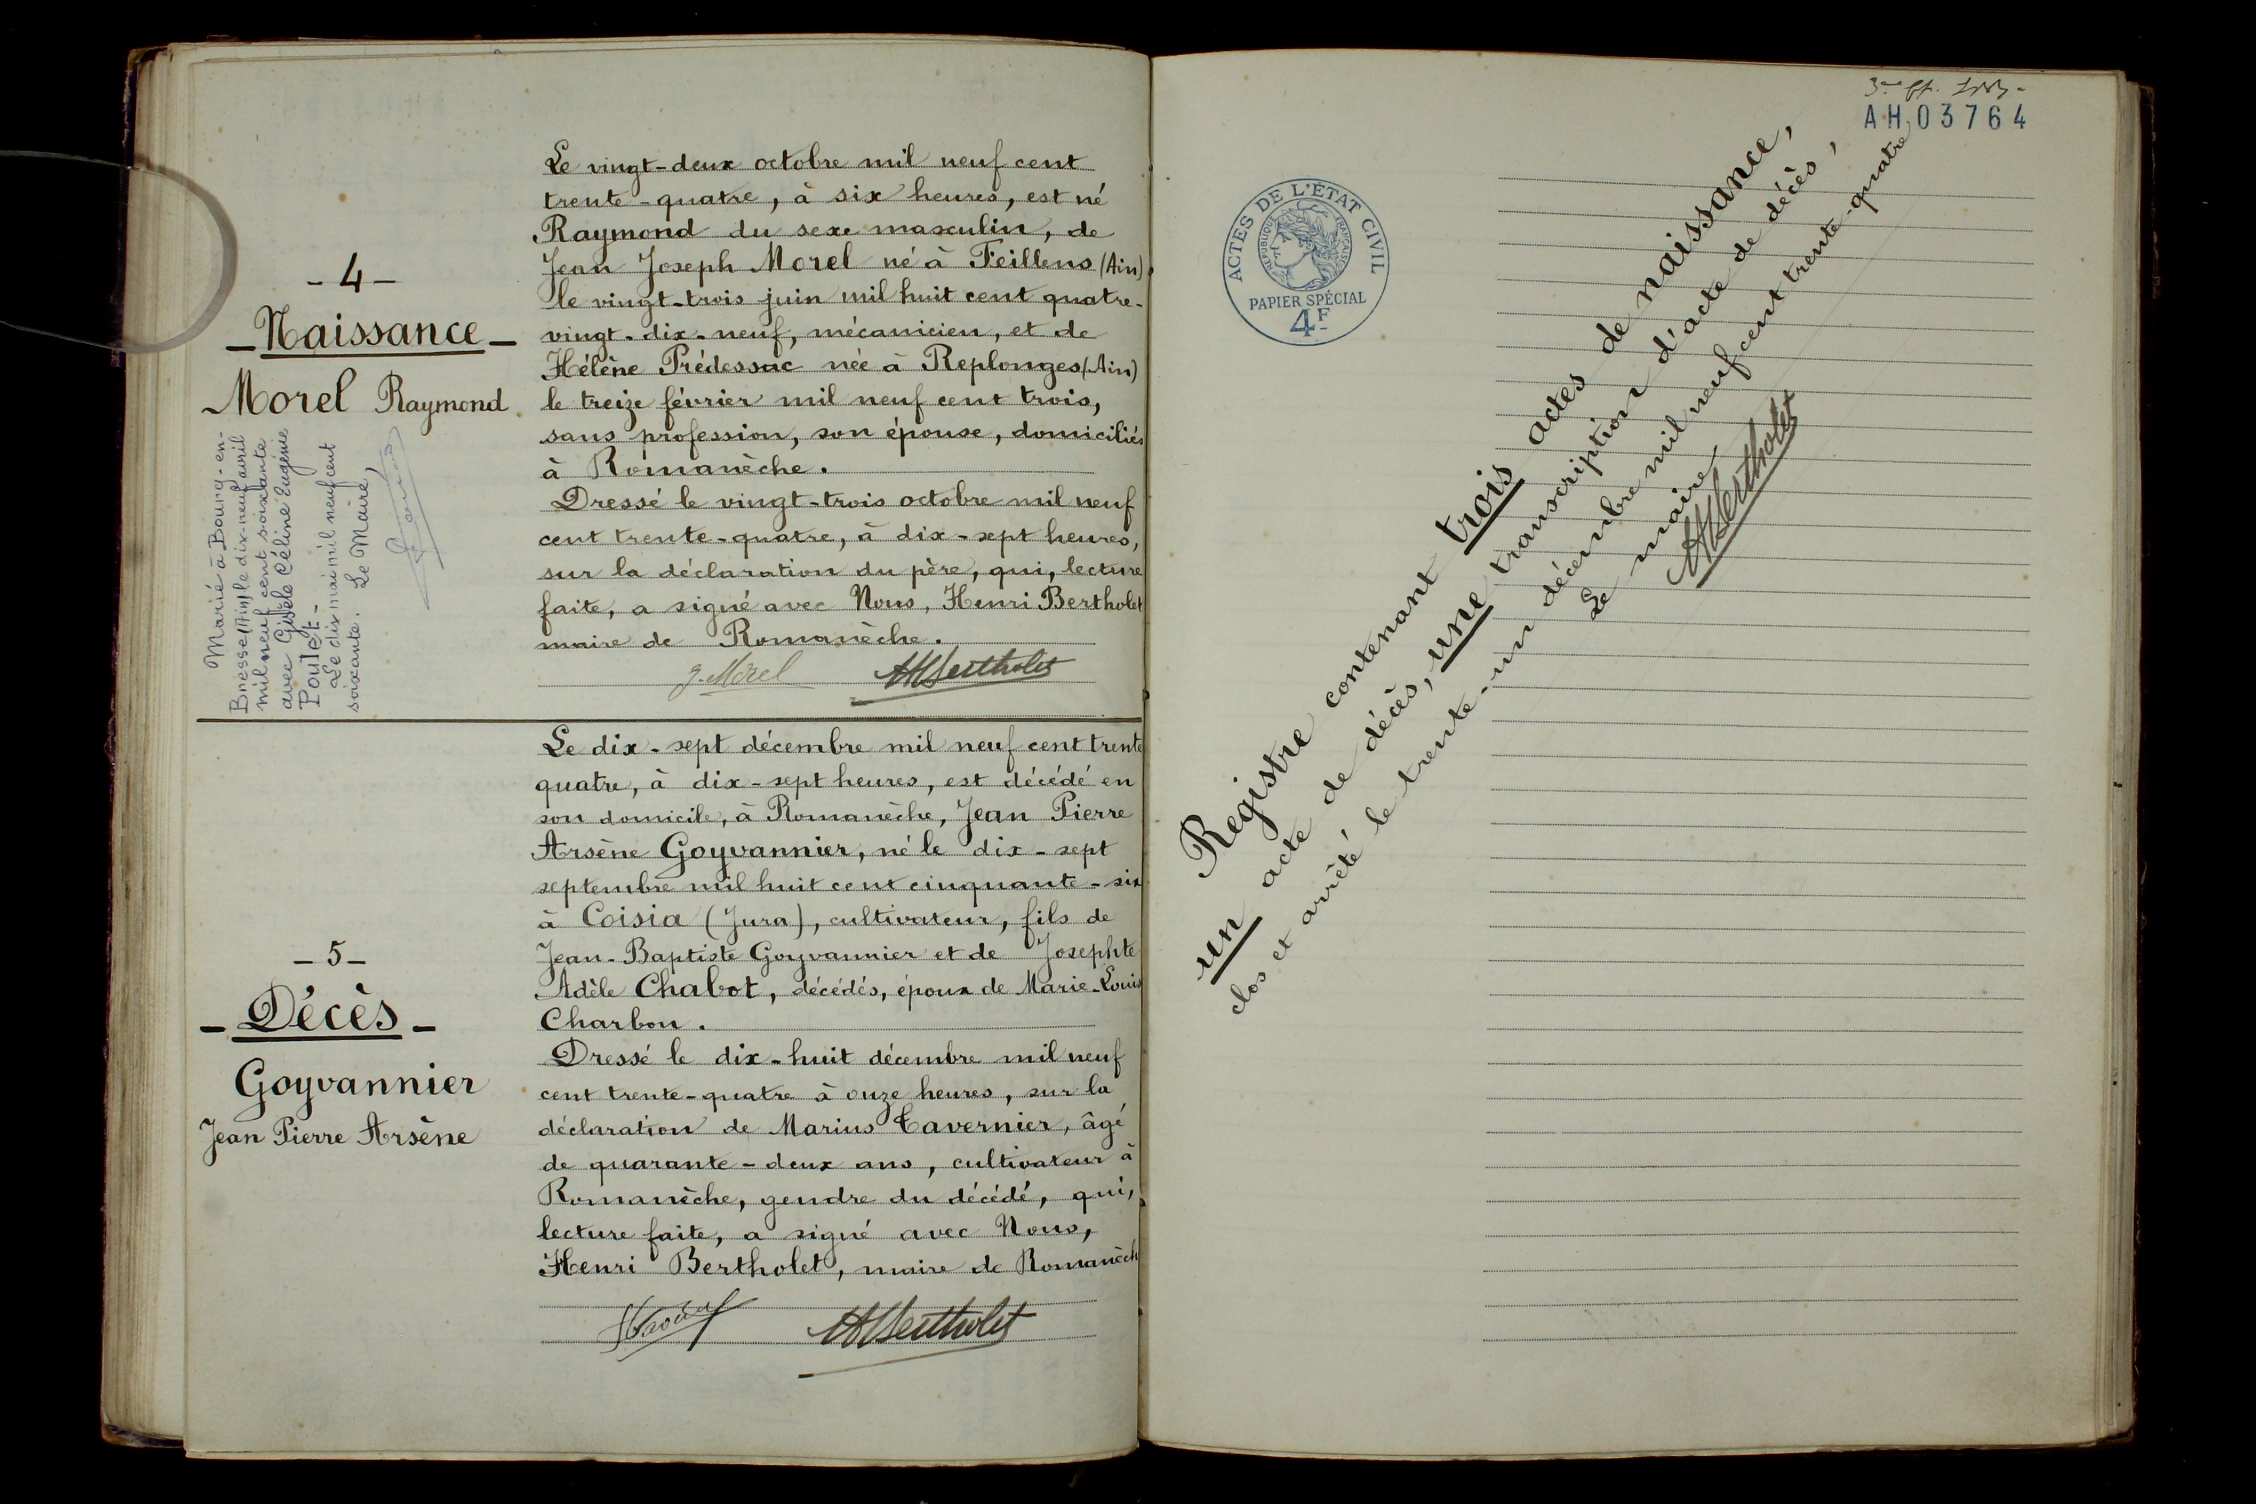 - 4 -
- Naissance -
Morel Raymond
Marié à Bourg-en-
Bresse (Ain) le dix-neuf avril
mil neuf cent soixante
avec Gisèle Céline Eugénie
Poulet.-
Le dix mai mil neuf cent
soixante. Le Maire,
Le vingt-deux octobre mil neuf cent
trente-quatre, à six heures, est né
Raymond du sexe masculin, de
Jean Joseph Morel né à Feillens (Ain)
le vingt-trois juin mil huit cent quatre-
vingt-dix-neuf, mécanicien, et de
Hélène Prédessac née à Replonges (Ain)
le treize février mil neuf cent trois,
sans profession, son épouse, domiciliés
à Romanèche.
Dressé le vingt-trois octobre mil neuf
cent trente-quatre, à dix-sept heures,
sur la déclaration du père, qui, lecture
faite, a signé avec Nous, Henri Bertholet
maire de Romanèche.
J. Morel HBertholet
- 5 -
- Décès -
Goyvannier
Jean Pierre Arsène
Le dix-sept décembre mil neuf cent trente
quatre, à dix-sept heures, est décédé en
son domicile, à Romanèche, Jean Pierre
Arsène Goyvannier, né le dix-sept
septembre mil huit cent cinquante-six
à Coisia (Jura), cultivateur, fils de
Jean-Baptiste Goyvannier et de Josephte
Adèle Chabot, décédés, époux de Marie-Louis
Charbon.
Dressé le dix-huit décembre mil neuf
cent trente-quatre à onze heures, sur la
déclaration de Marius Tavernier, âgé
de quarante-deux ans, cultivateur à
Romanèche, gendre du décédé, qui,
lecture faite, a signé avec Nous,
Henri Bertholet, maire de Romanèch
HBertholet
AH 03764
ACTES DE L'ÉTAT CIVIL
RÉPUBLIQUE FRANÇAISE
PAPIER SPÉCIAL
4F
Registre contenant trois actes de naissance,
un acte de décès, une transcription d'acte de décès,
clos et arrêté le trente-un décembre mil neuf cent trente-quatre
Le maire,
HBertholet